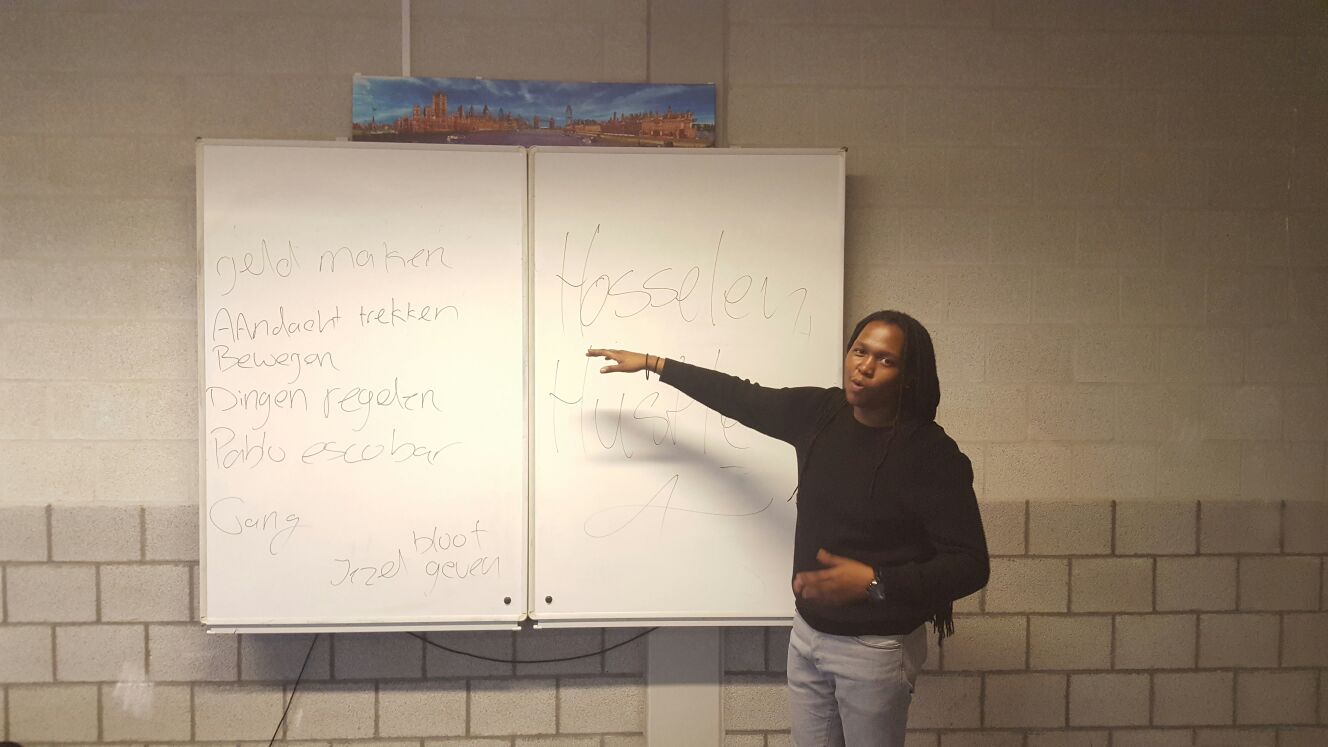 geld maken
AAndacht trekken
Bewegen
Dingen regelen
Pablo escobar
Gang
bloot
geven
Hosselen
Hustle